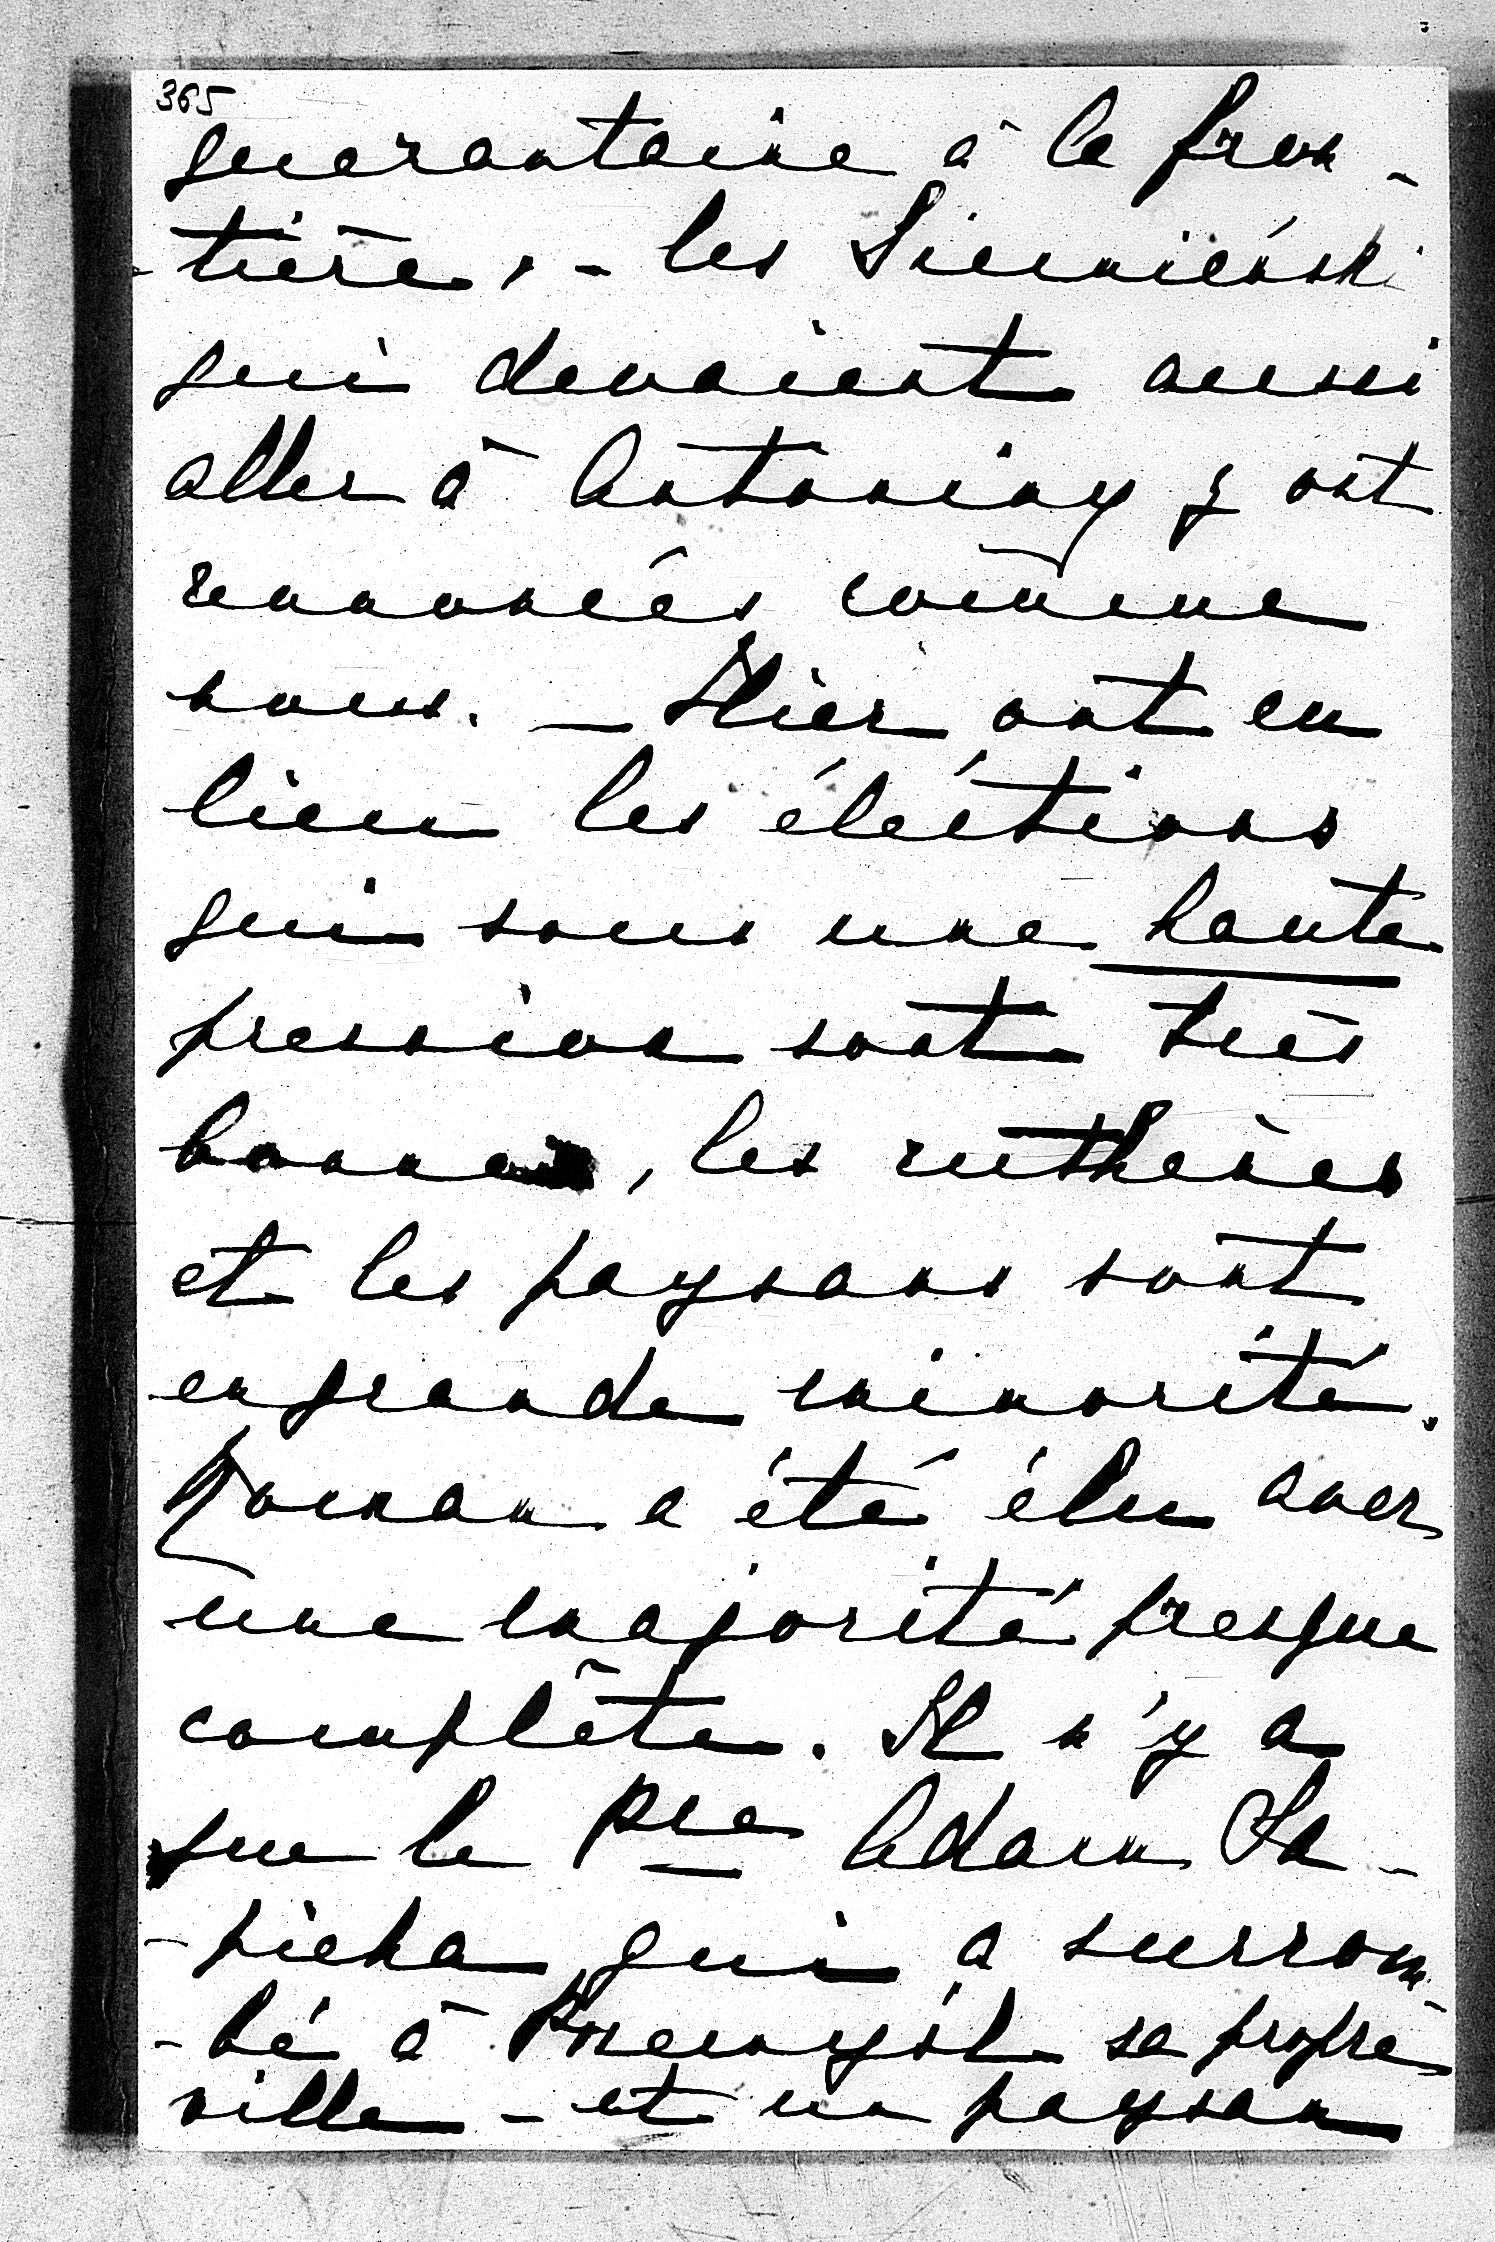 365
quarantaine à la fron-
-tière, - les Siemieński
qui devaient aussi
aller à Antoniny y ont
renoncés comme
nous. - Hier ont eu
lieu les éléctions
qui sous une haute
pression sont très
bonnes, les ruthènes
et les paysans sont
en grande minorité.
Roman a été élu avec
une majorité presque
complète. Il n'y a
que le Pce Adam Sa-
-pieha qui a surrom-
-bé à Przemyśl sa propre
ville - et un paysan